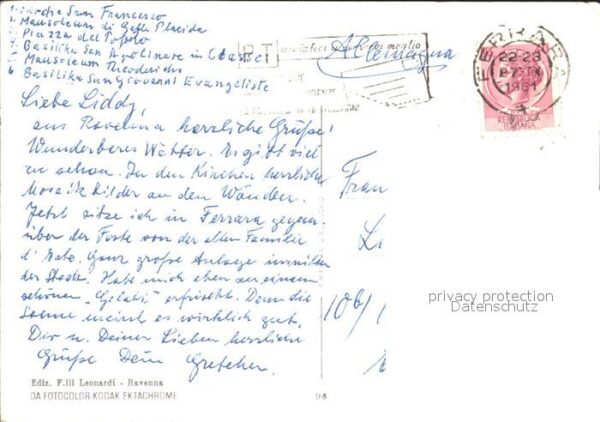 San Francesco
2 Mausoleum di Galla Placidia
3 Piazza del Popolo
4 Basilika San Apolinare in Classe
5 Mausoleum Theoderichs
6 Basilika San Giovanni Evangeliste
Liebe Liddy,
aus Ravenna herrliche Grüße!
Wunderbares Wetter. Es gibt viel
zu sehen. In den Kirchen herrliche
Mosaik Bilder an den Wänden.
Jetzt sitze ich in Ferrara gegen-
über der Feste von der alten Familie
d'Este. Ganz große Anlage inmitten
der Stadt. Habe mich eben an einem
schönen „Gelati" erfrischt. Denn die
Sonne meint es wirklich gut.
Dir u. Deiner Lieben herzliche
Grüße Deine Gretchen.
Ediz. F.lli Leonardi - Ravenna
DA FOTOCOLOR KODAK EKTACHROME
98
P.T.
meglio
Alemagna
FERRARA
22-23
1961
REPUBBLICA
ITALIANA
Fran
L
106/
privacy protection
Datenschutz